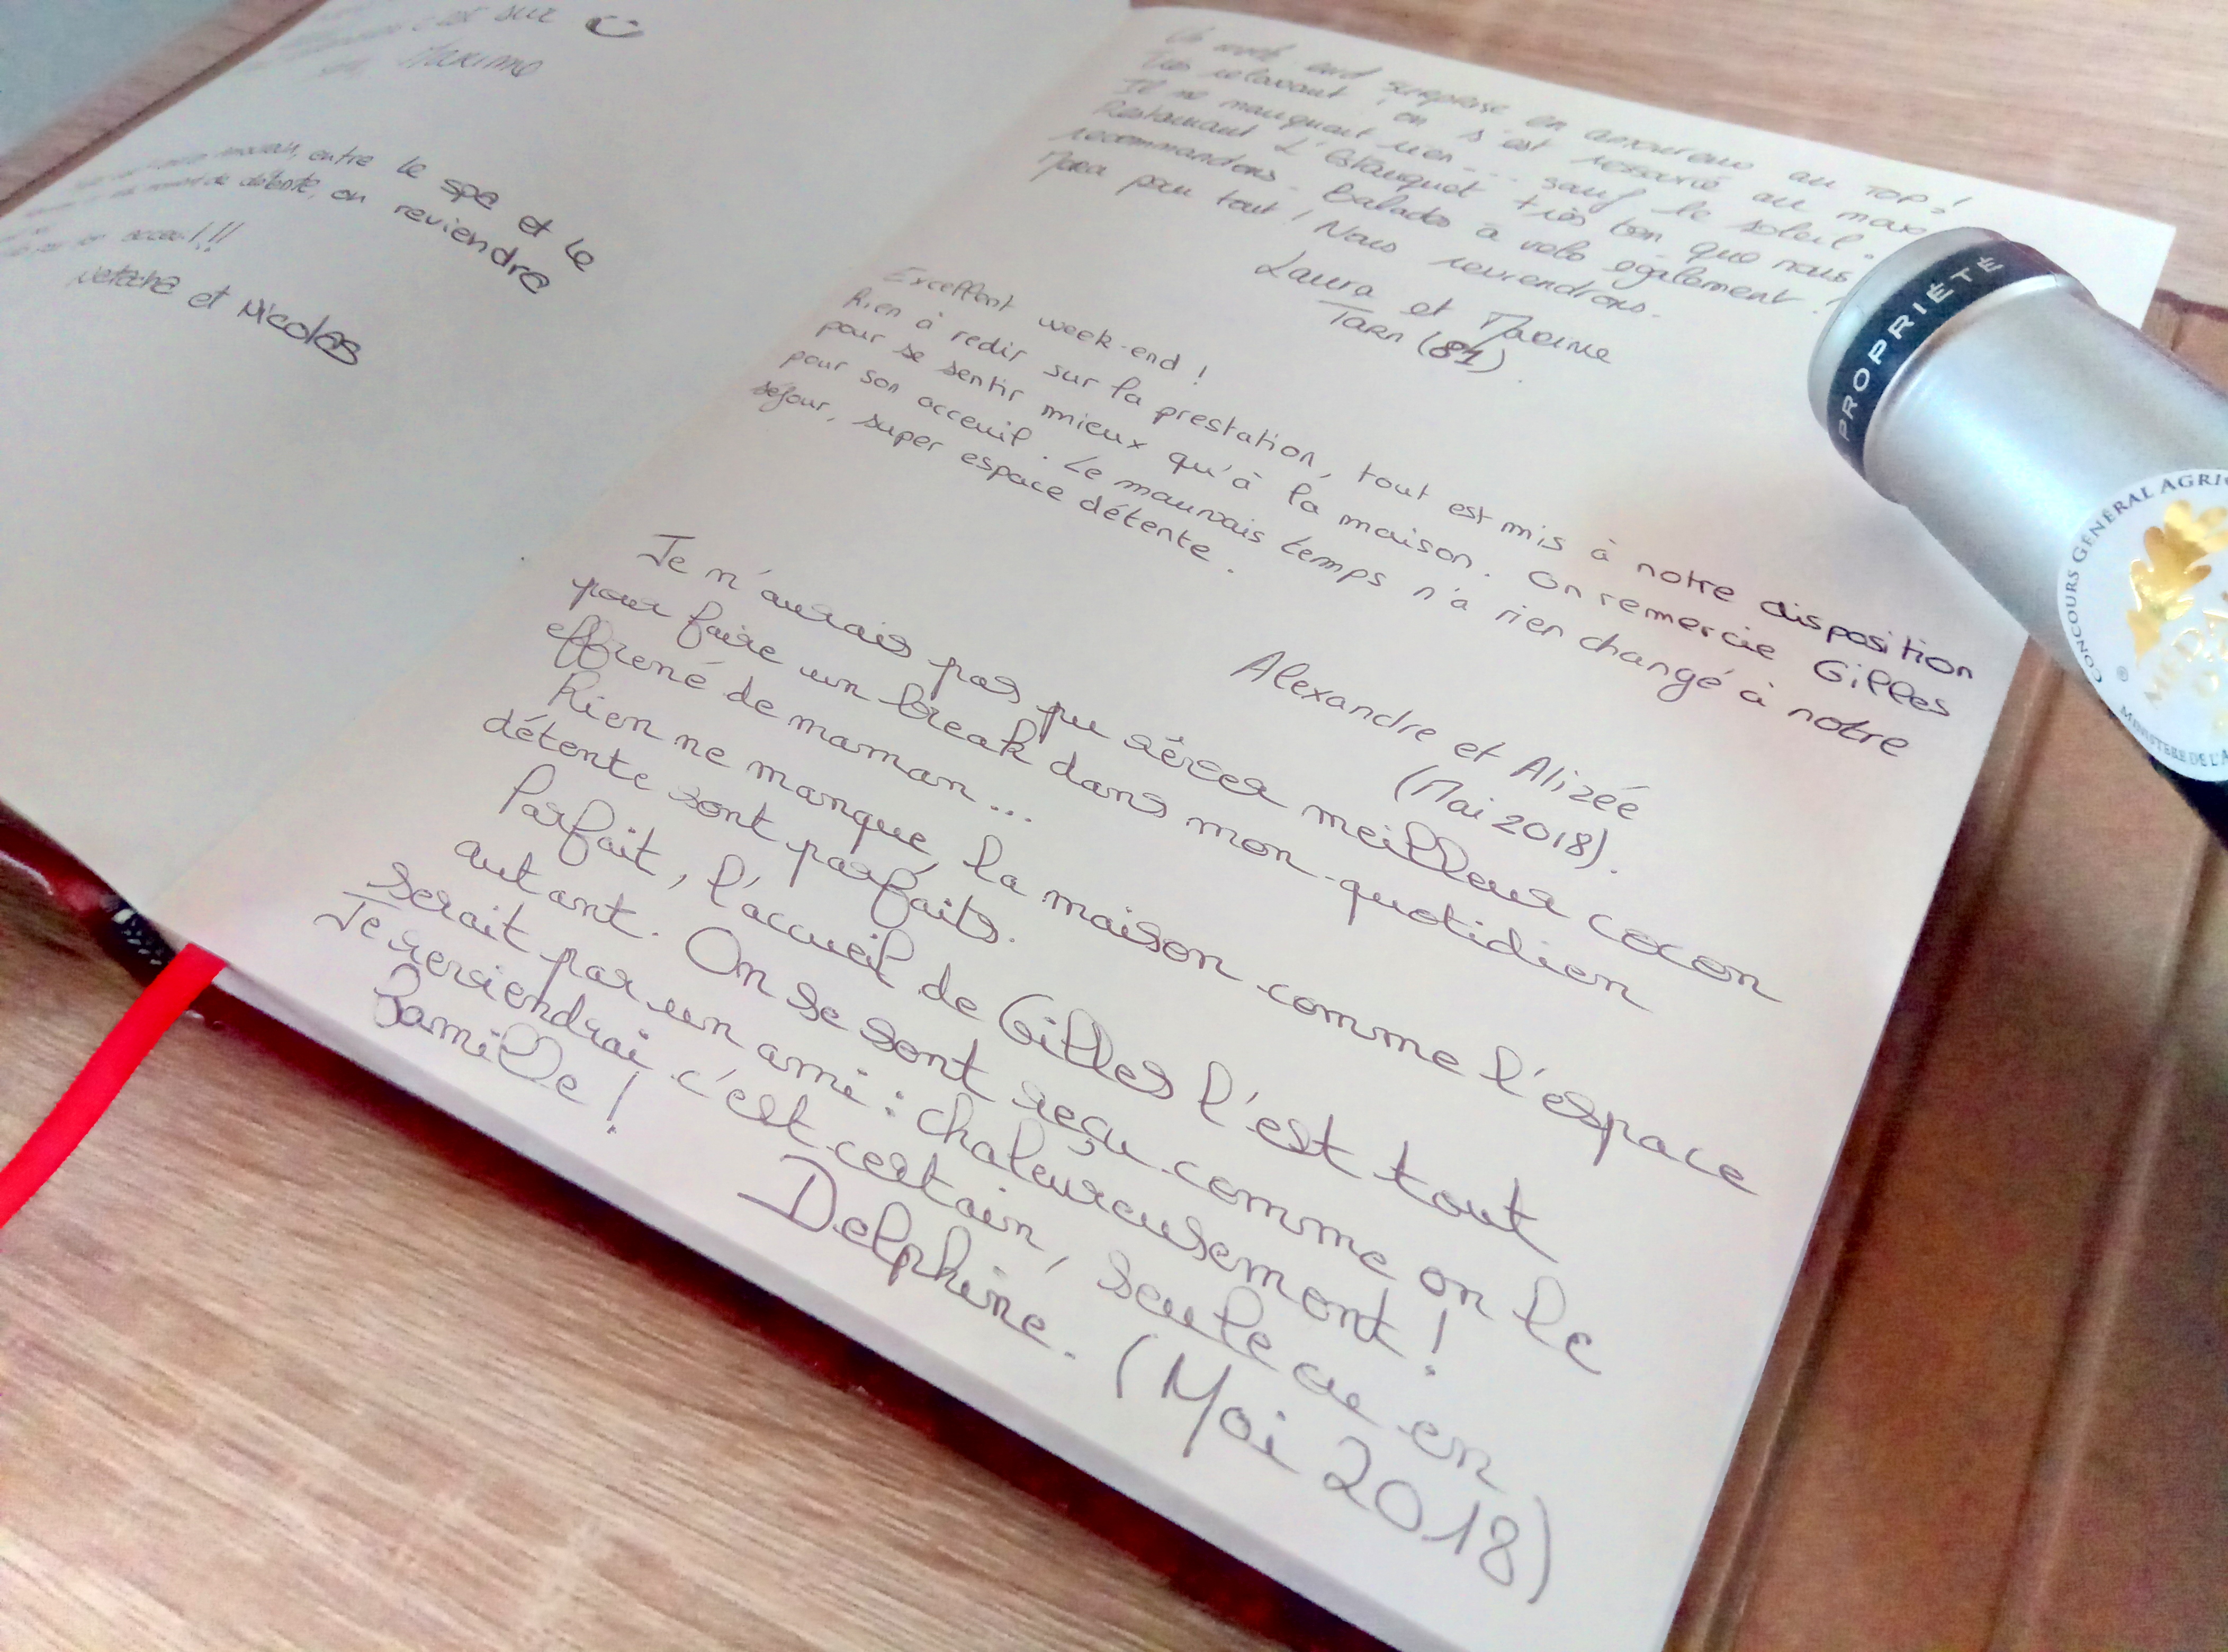 sur
Maxime
entre le spa et le
de détente, on reviendra
!!!
Natacha et Nicolas
Un week end surprise en amoureux au TOP!
Très relaxant, on s'est ressourcé au max
Il ne manquait rien... sauf le soleil.
Restaurant L'Estanquet très bon que nous
recommandons. Balades à vélo également!
Merci pour tout! Nous reviendrons.
Laura et Maxime
TARN (81).
Excellent week-end !
Rien à redir sur la prestation, tout est mis à notre disposition
pour se sentir mieux qu'à la maison. On remercie Gilles
pour son acceuil. Le mauvais temps n'a rien changé à notre
séjour, super espace détente.
Alexandre et Alizée
(Mai 2018).
Je n'aurais pas pu rêver meilleur cocon
pour faire un break dans mon quotidien
effréné de maman...
Rien ne manque, la maison comme l'espace
détente sont parfaits.
Parfait, l'accueil de Gilles l'est tout
autant. On se sont reçu comme on le
serait par un ami : chaleureusement !
Je reviendrai c'est certain, seule ou en
famille !
Delphine. (Mai 2018)
PROPRIÉTÉ
CONCOURS GÉNÉRAL
MINISTERE DE